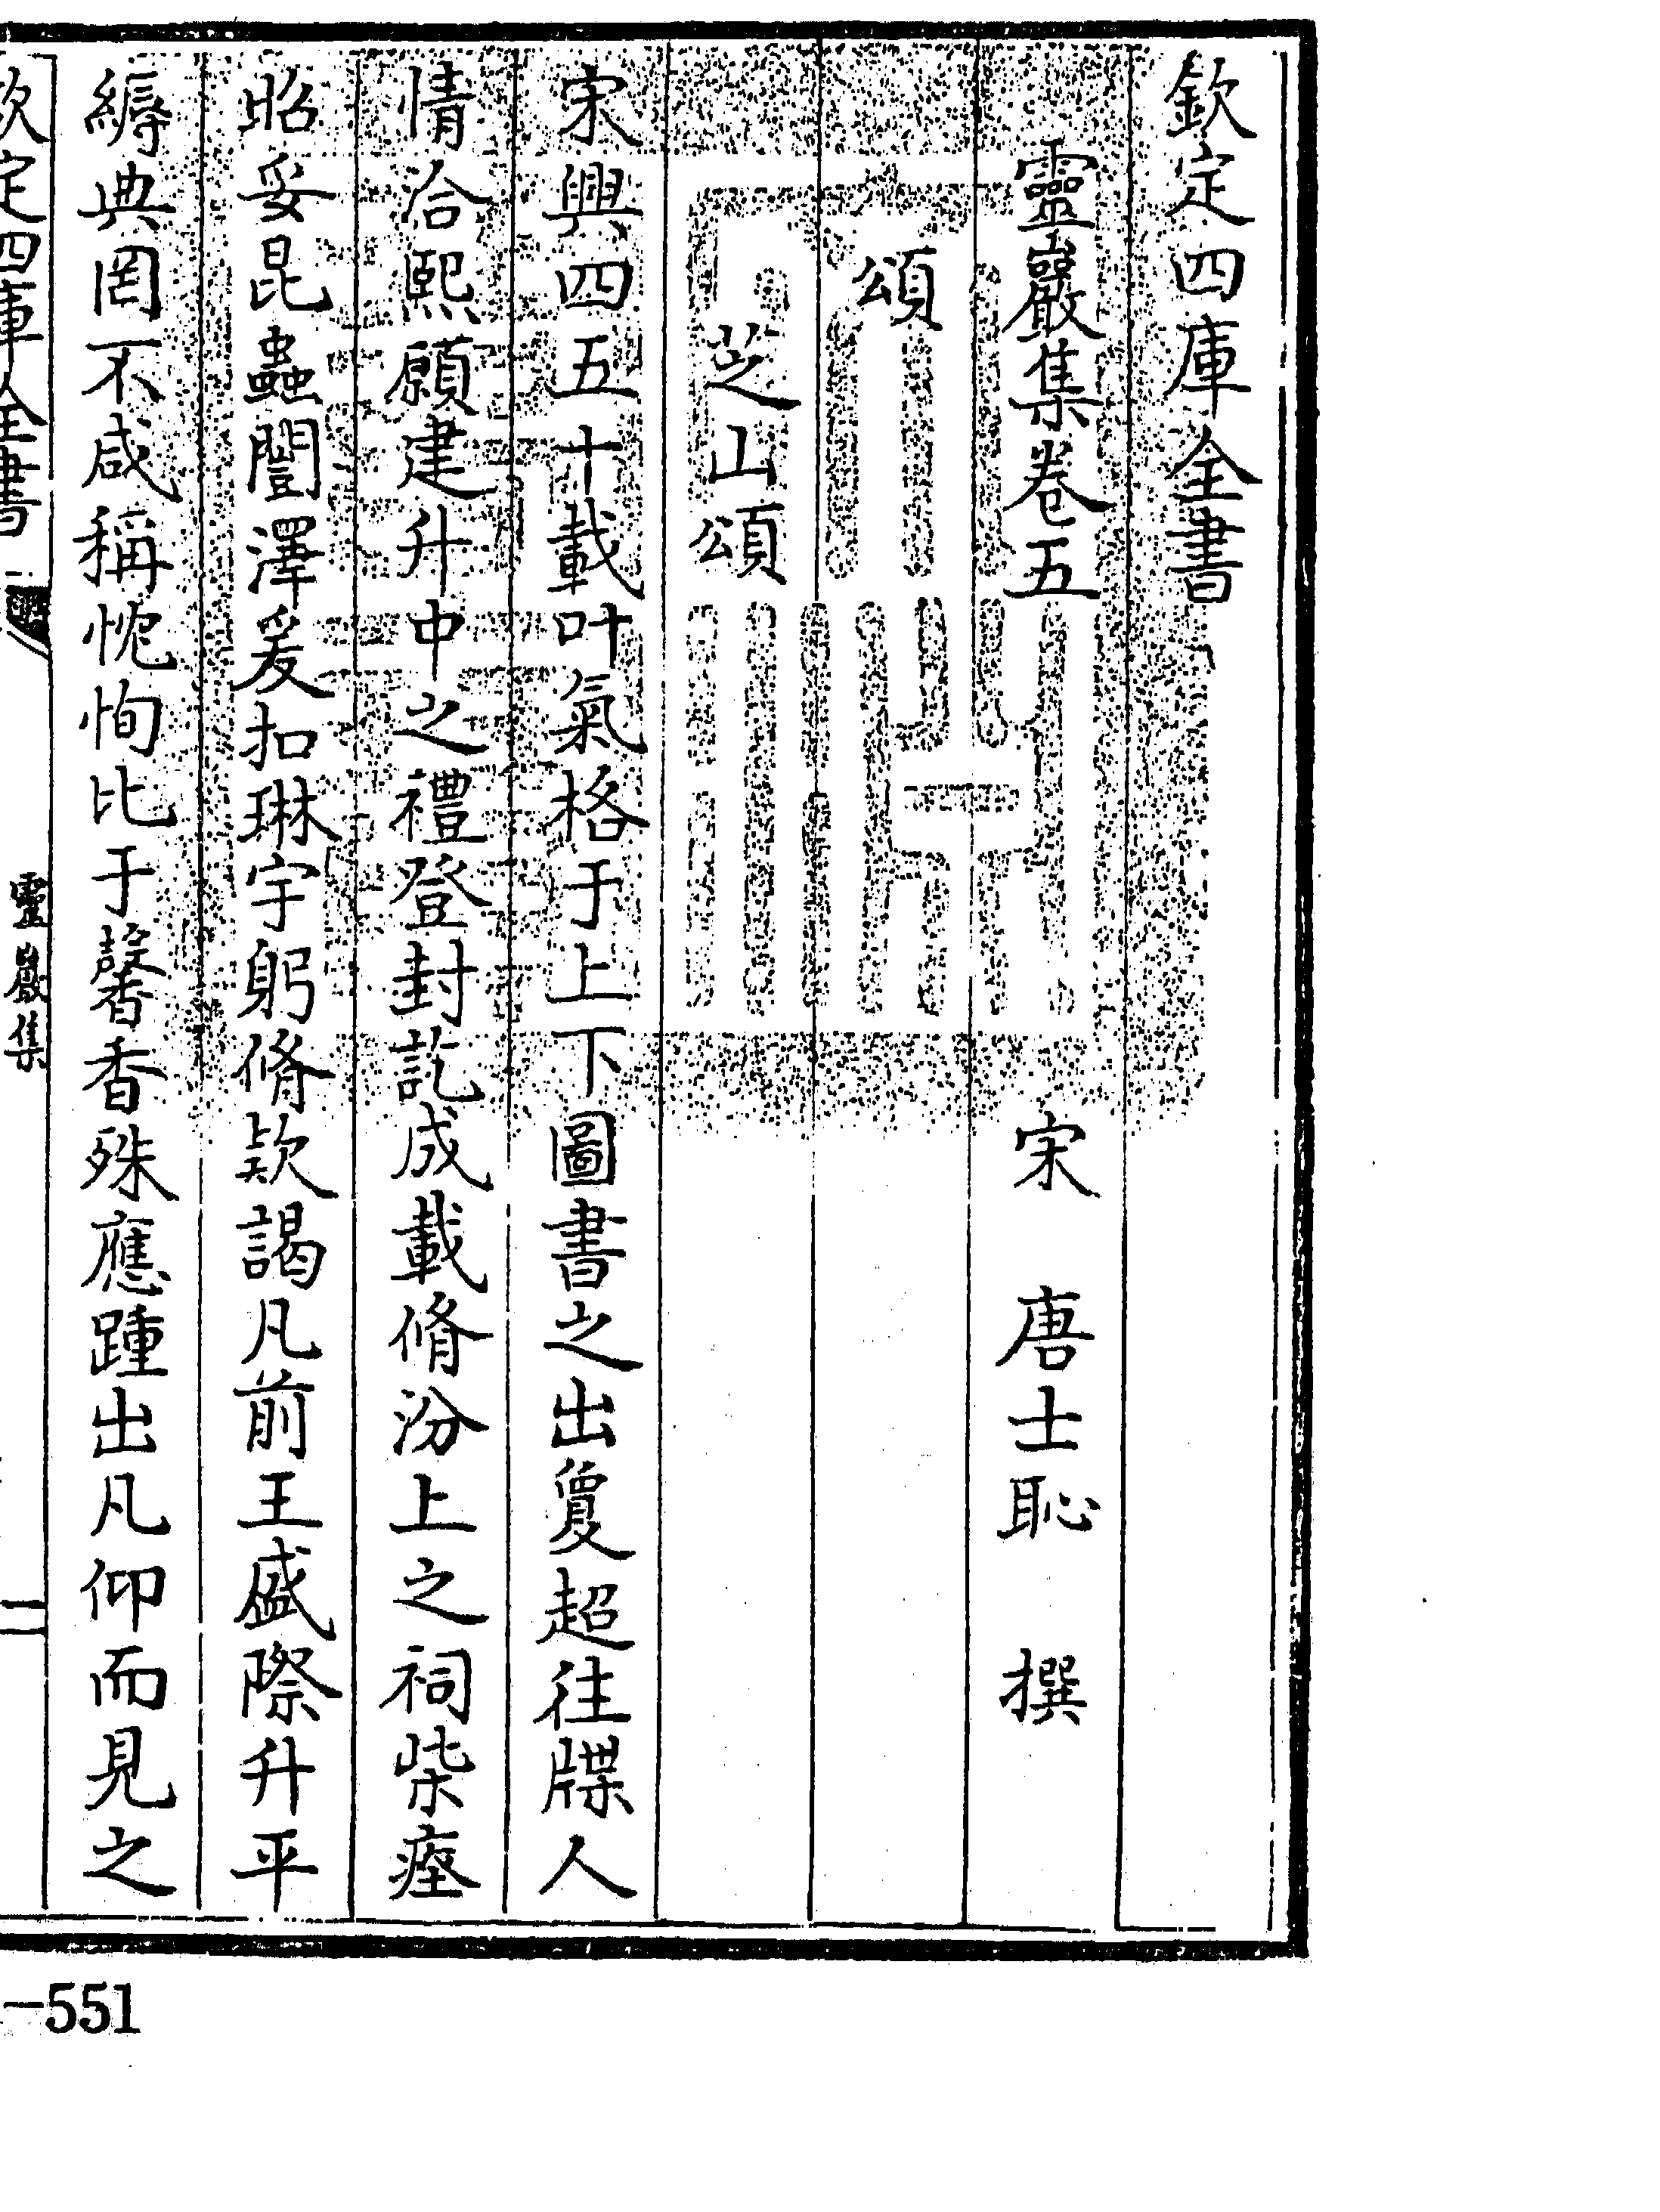 欽定四庫全書
靈巖集卷五
宋 唐士恥 撰
頌
芝山頌
宋興四五十載叶氣格于上下圖書之出夐超往牒人
情洽熙願建升中之禮登封訖成載脩汾上之祠柴瘞
昭妥昆蟲闓澤爰扣琳宇躬脩欵謁凡前王盛際升平
縟典罔不咸稱忱恂比于馨香殊應踵出凡仰而見之
欽定四庫全書
靈巖集
二
-551